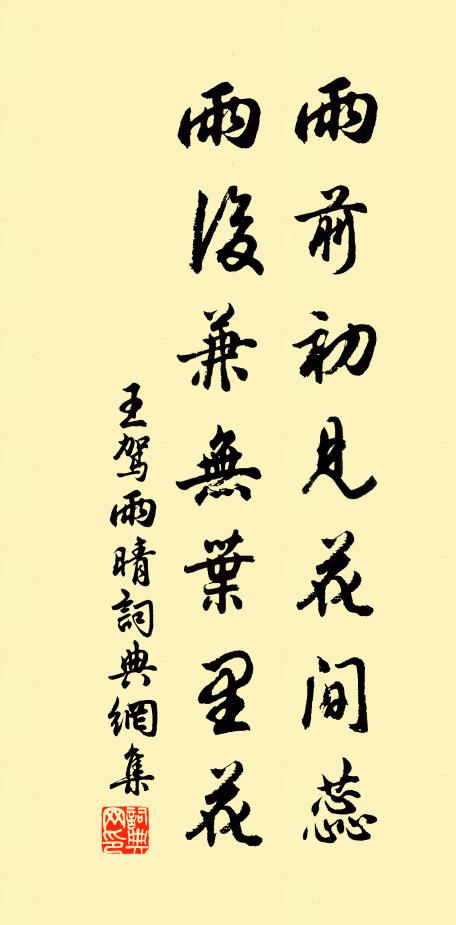 雨前初見花間蕊
雨後兼無葉里花
王駕雨晴詞典網集
詞典网印